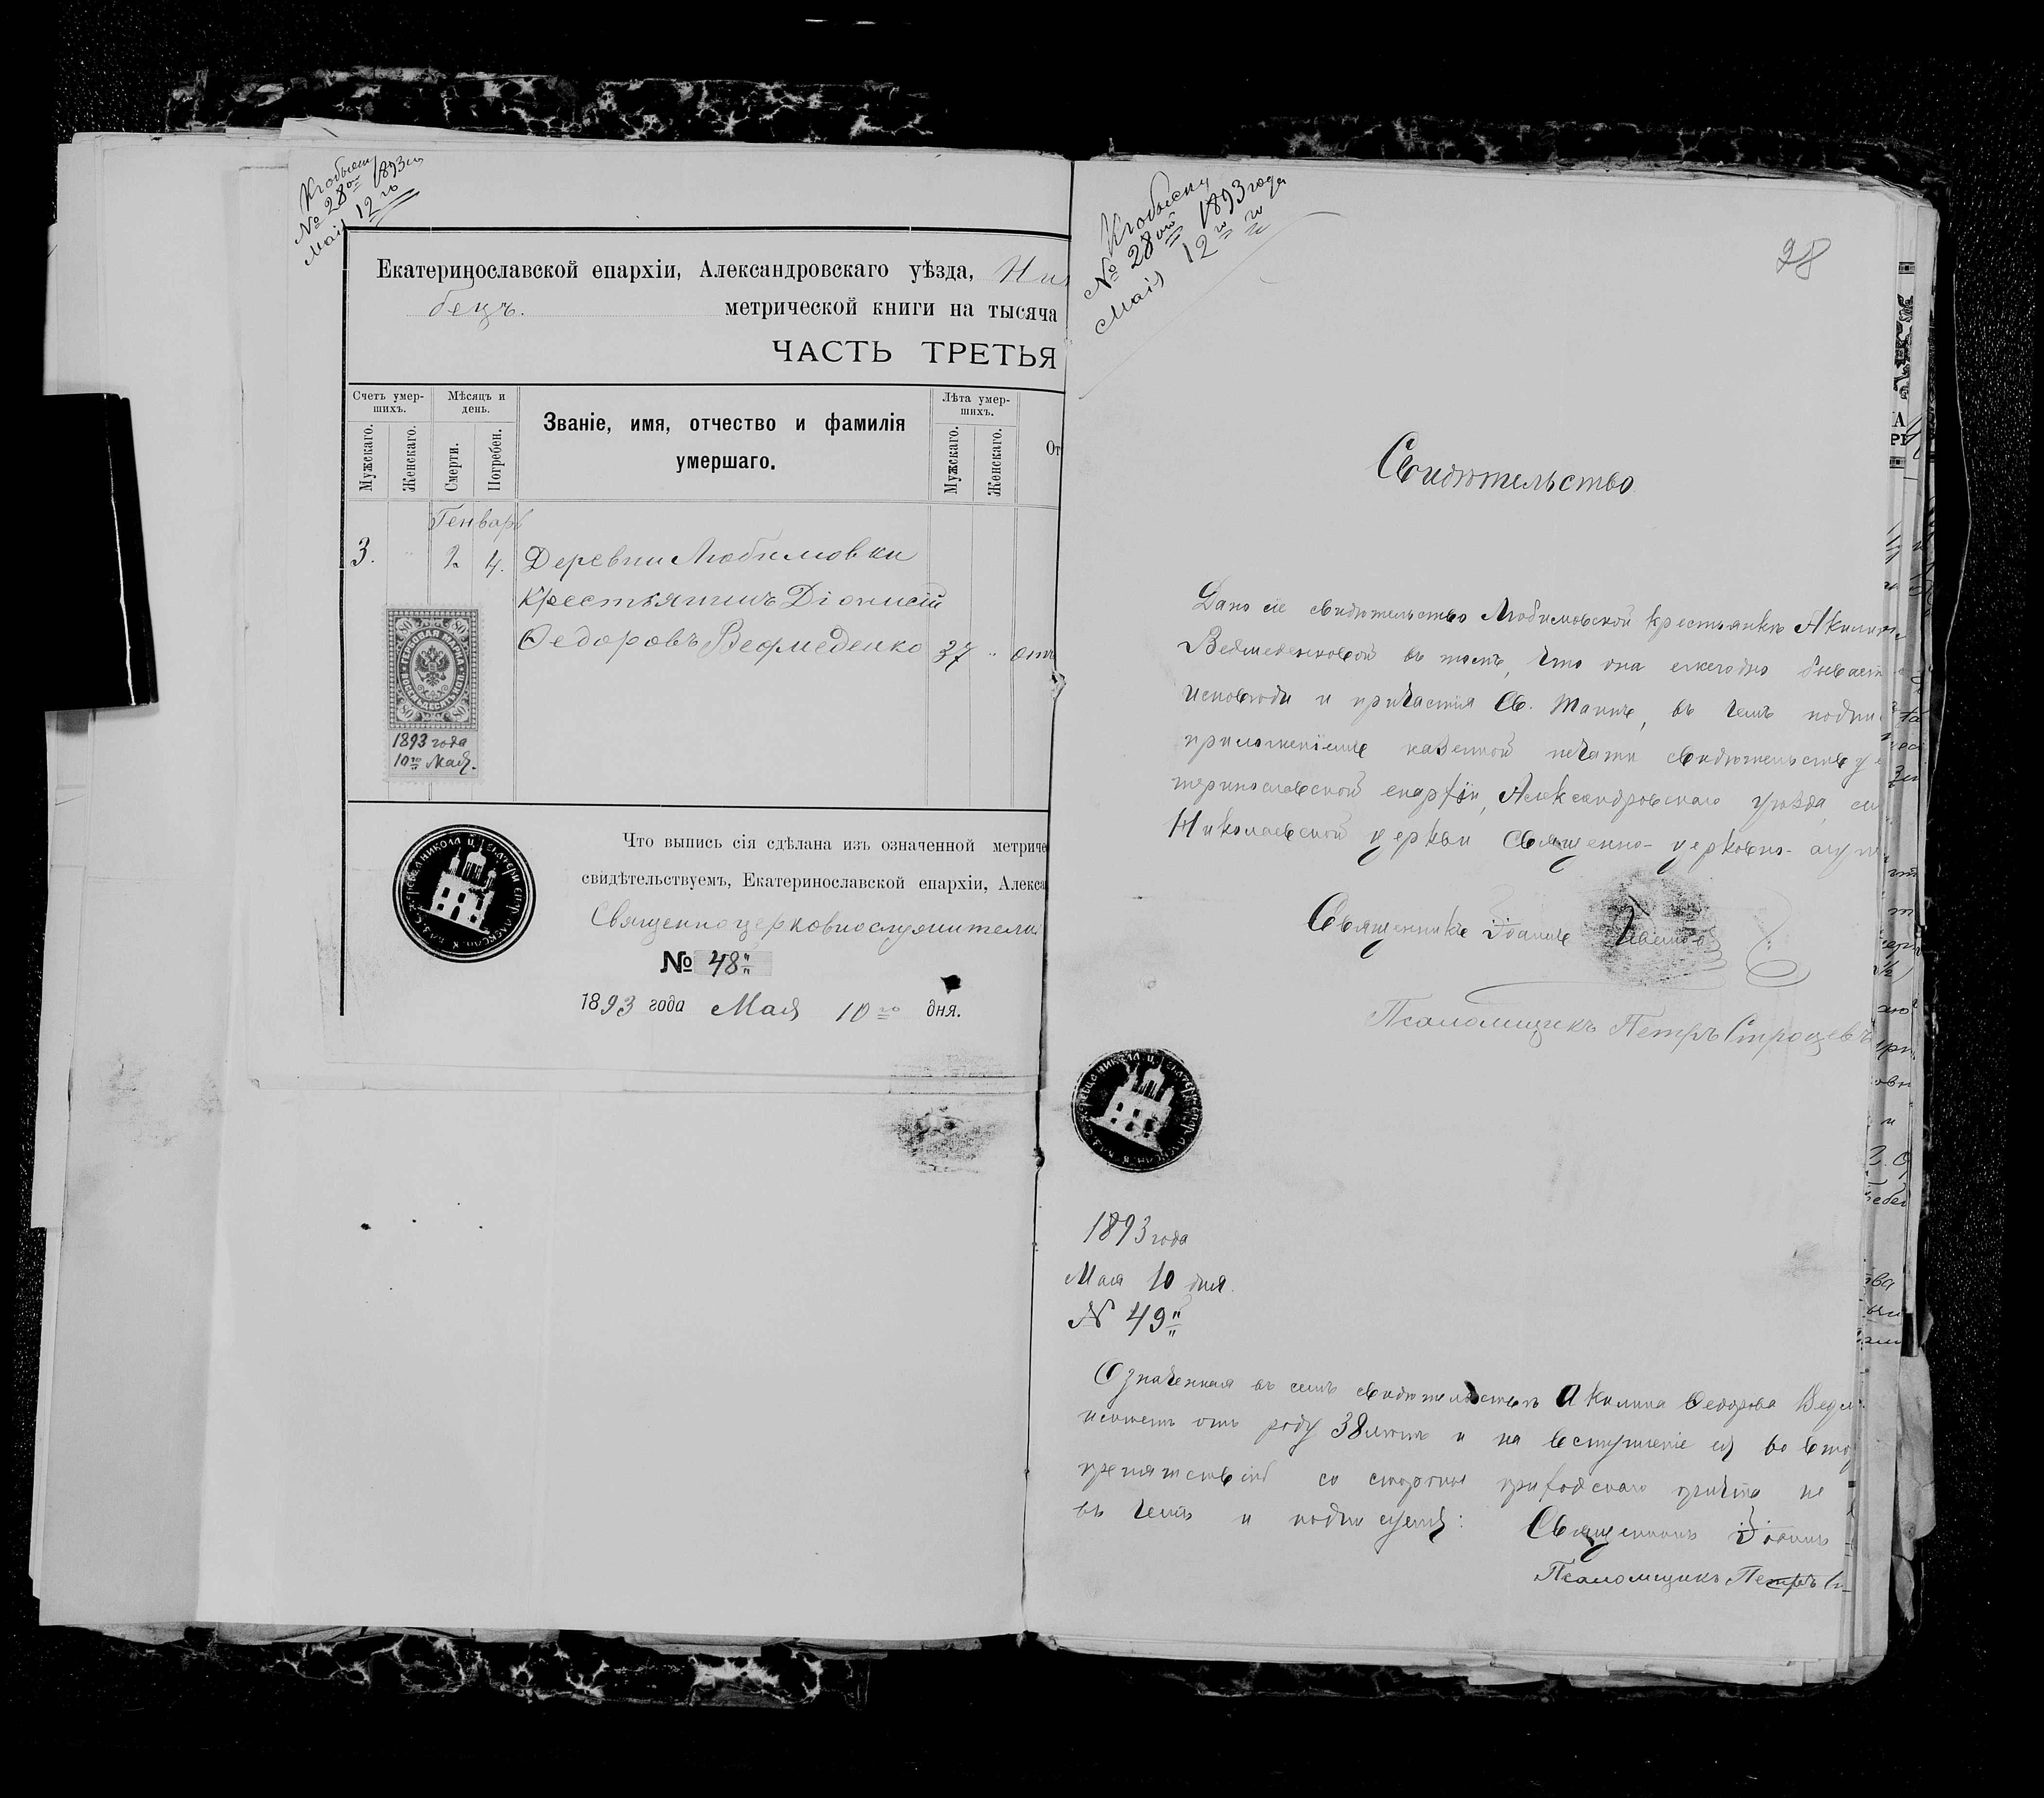 Къ обыску
№ 28ой 1893 го
Мая 12 го
Екатеринославской епархіи, Александровскаго уѣзда,
бецъ.
метрической книги на тысяча
ЧАСТЬ ТРЕТЬЯ
Счетъ умер-
шихъ.
Мѣсяцъ и
день.
Званіе, имя, отчество и фамилія
умершаго.
Лѣта умер-
шихъ.
От
Мужскаго.
Женскаго.
Смерти.
Погребен.
Мужскаго.
Женскаго.
Генварь
3. " 2 4. Деревни Любимовки
крестьянинъ Діонисій
Ѳедоровъ Ведмеденко 37 " отъ
80 80
ГЕРБОВАЯ МАРКА
ВОСЕМЬДЕСЯТЪ КОП.
80 80
1893 года
10го Мая.
Что выпись сія сдѣлана изъ означенной метриче
свидѣтельствуемъ, Екатеринославской епархіи, Алекса
Священноцерковнослужители
№ 48"
1893 года Мая 10го дня.
Къ обыску
№ 28ой 1893 года
Мая 12 го
28
Свидѣтельство
Дано сіе свидѣтельство Любимовской крестьянкѣ Акилинѣ
Ведмеденковой въ томъ, что она ежегодно бывает
исповѣди и причастія Св. Таинъ, въ чемъ подпи
приложеніемъ казенной печати свидѣтельству
теринославской епархіи, Александровскаго уѣзда,
Николаевской церкви Священно-церковно-служ
Священникъ Іоаннъ
Псаломщикъ Петръ Строцевъ
1893 года
Мая 10 дня.
N 49"
Означенная въ семъ свидѣтельствѣ Акилина Ѳедорова Ведм
имѣетъ отъ роду 38 лѣтъ и на вступленіе ея во вто
препятствій со стороны приходскаго причта не
въ чемъ и подписуемъ: Священникъ Іоаннъ
Псаломщикъ Петръ